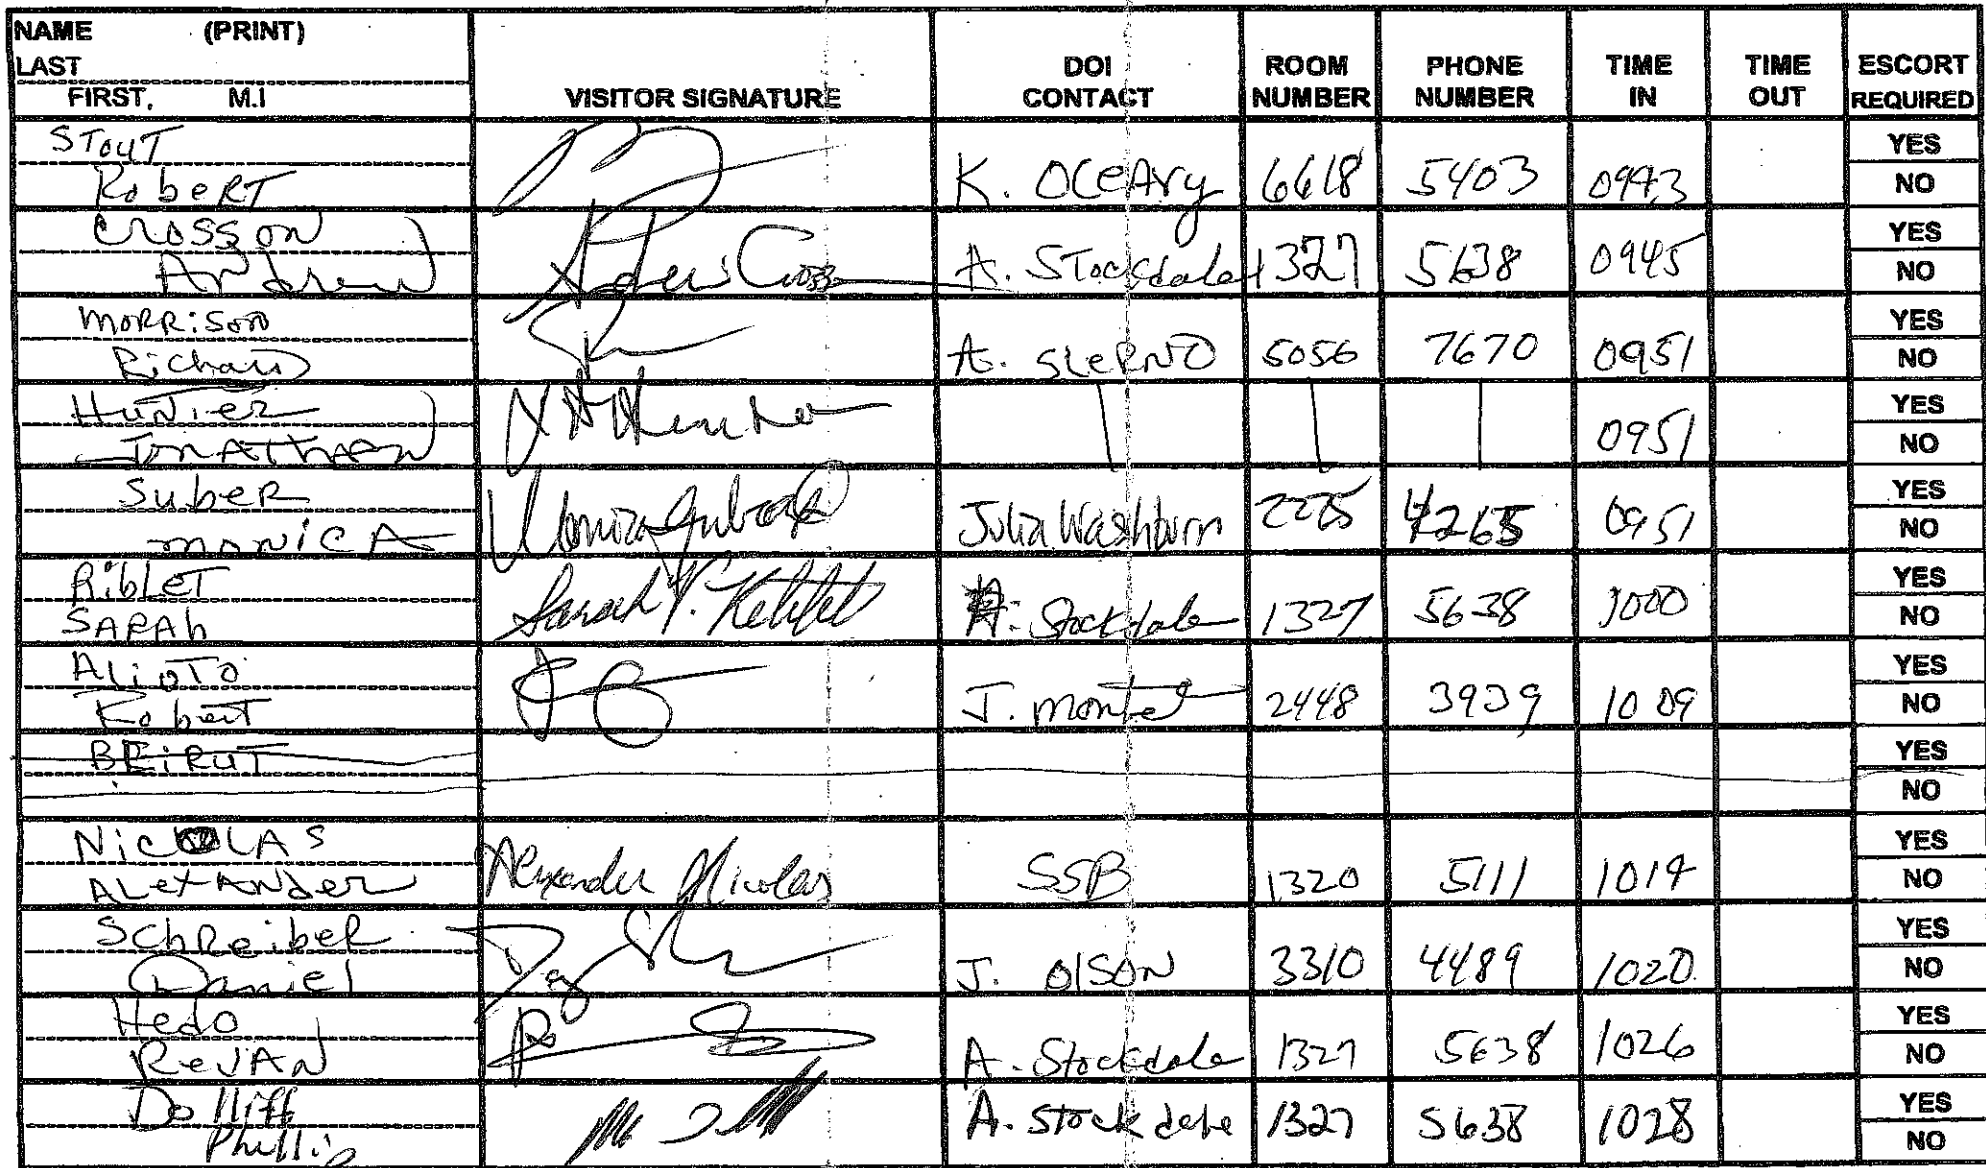 NAME (PRINT)
LAST
FIRST, M.I
VISITOR SIGNATURE
DOI CONTACT
ROOM NUMBER
PHONE NUMBER
TIME IN
TIME OUT
ESCORT REQUIRED
STouT
RobeRT K. OCeAry 6618 5403 0943 YES NO
CROSSON
Andrew Andrew Cross A. Stockdale 1327 5638 0945 YES NO
MORRiSON
Richard A. SLeRNO 5056 7670 0951 YES NO
HuNTeR
JONATHAN 0951 YES NO
SubeR
MONiCA Julia Washburn 2225 4265 0951 YES NO
RibLeT
SARAh Sarah A. Stockdale 1327 5638 1000 YES NO
ALioTo
Robert J. 2448 3939 1009 YES NO
BEiRUT YES NO
NiCOLAS
ALexANder Alexander Nicolas SSB 1320 5111 1014 YES NO
SchReibeR
Daniel J. OlSON 3310 4489 1020 YES NO
Hedo
ReVAN A. Stockdale 1327 5638 1026 YES NO
Dolliff
Phillip A. Stockdale 1327 5638 1028 YES NO